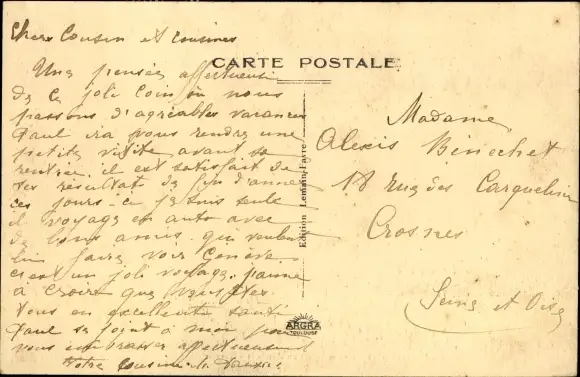 Chers Cousin et cousines
CARTE POSTALE
Une pensée affectueuse
de ce joli coin où nous
passons d'agréables vacances
Paul ira vous rendre une
petite visite avant sa
rentrée il est satisfait de
ses résultat de fin d'année
ces jours-ci je suis seule
il voyage en auto avec
de bons amis qui veulent
lui faire voir Genève
c'est un joli voyage
à croire que vous êtes
tous en excellente santé
Paul se joint à moi pour
vous embrasser affectueusement
Votre cousine
Edition Lemain-Favre
ARGRA
TOULOUSE
Madame
Alexis Benechet
18 rue des
Crosnes
Seine et Oise